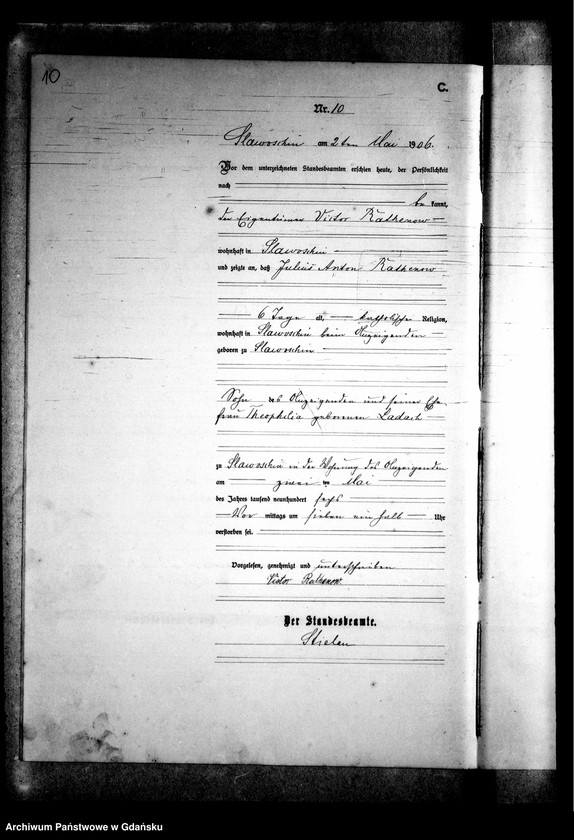 10
C.
Nr. 10
Slawoschin am 2ten Mai 1906.
Vor dem unterzeichneten Standesbeamten erschien heute, der Persönlichkeit
nach
be kannt,
der Eigentümer Victor Rathenow
wohnhaft in Slawoschin
und zeigte an, daß Julius Anton Rathenow
6 Tage alt, katholischer Religion,
wohnhaft in Slawoschin beim Anzeigenden
geboren zu Slawoschin
Sohn des Anzeigenden und seiner Ehe
frau Theophilia geborenen Ladach
zu Slawoschin in der Wohnung des Anzeigenden
am zwei ten Mai
des Jahres tausend neunhundert sechs
Vor mittags um sieben ein halb Uhr
verstorben sei.
Vorgelesen, genehmigt und unterschrieben
Victor Rathenow.
Der Standesbeamte.
Archiwum Państwowe w Gdańsku